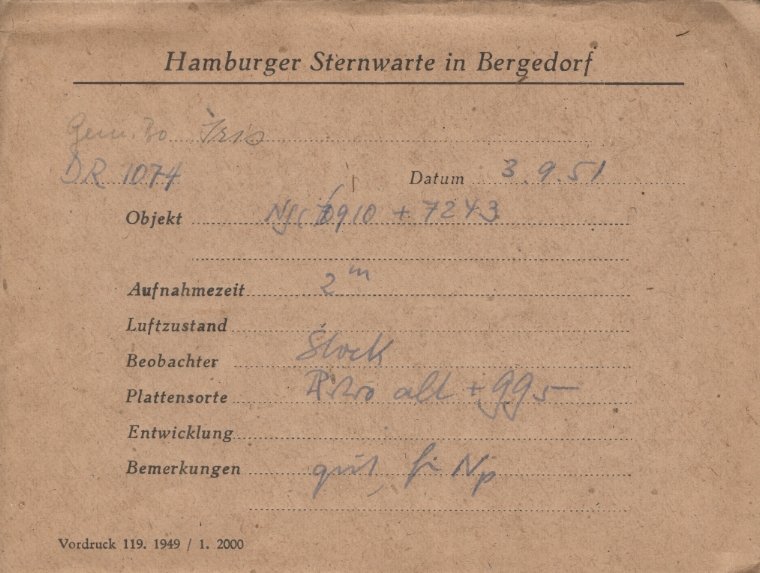 Hamburger Sternwarte in Bergedorf
Iris
DR 1074 Datum 3.9.51
Objekt 6910 + 7243
Aufnahmezeit 2 m
Luftzustand
Beobachter Stock
Plattensorte alt + 99
Entwicklung
Bemerkungen gut,
Vordruck 119. 1949 / 1. 2000